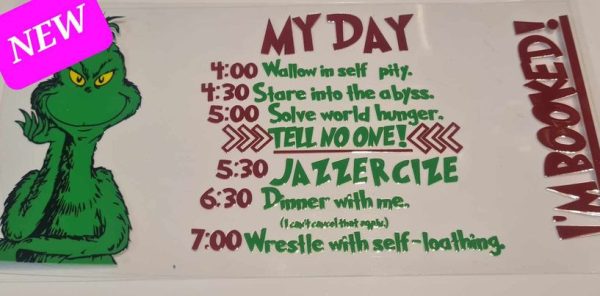 NEW
MY DAY
4:00 Wallow in self pity.
4:30 Stare into the abyss.
5:00 Solve world hunger.
TELL NO ONE!
5:30 JAZZERCIZE
6:30 Dinner with me.
(I can't cancel that again.)
7:00 Wrestle with self-loathing.
I'M BOOKED!